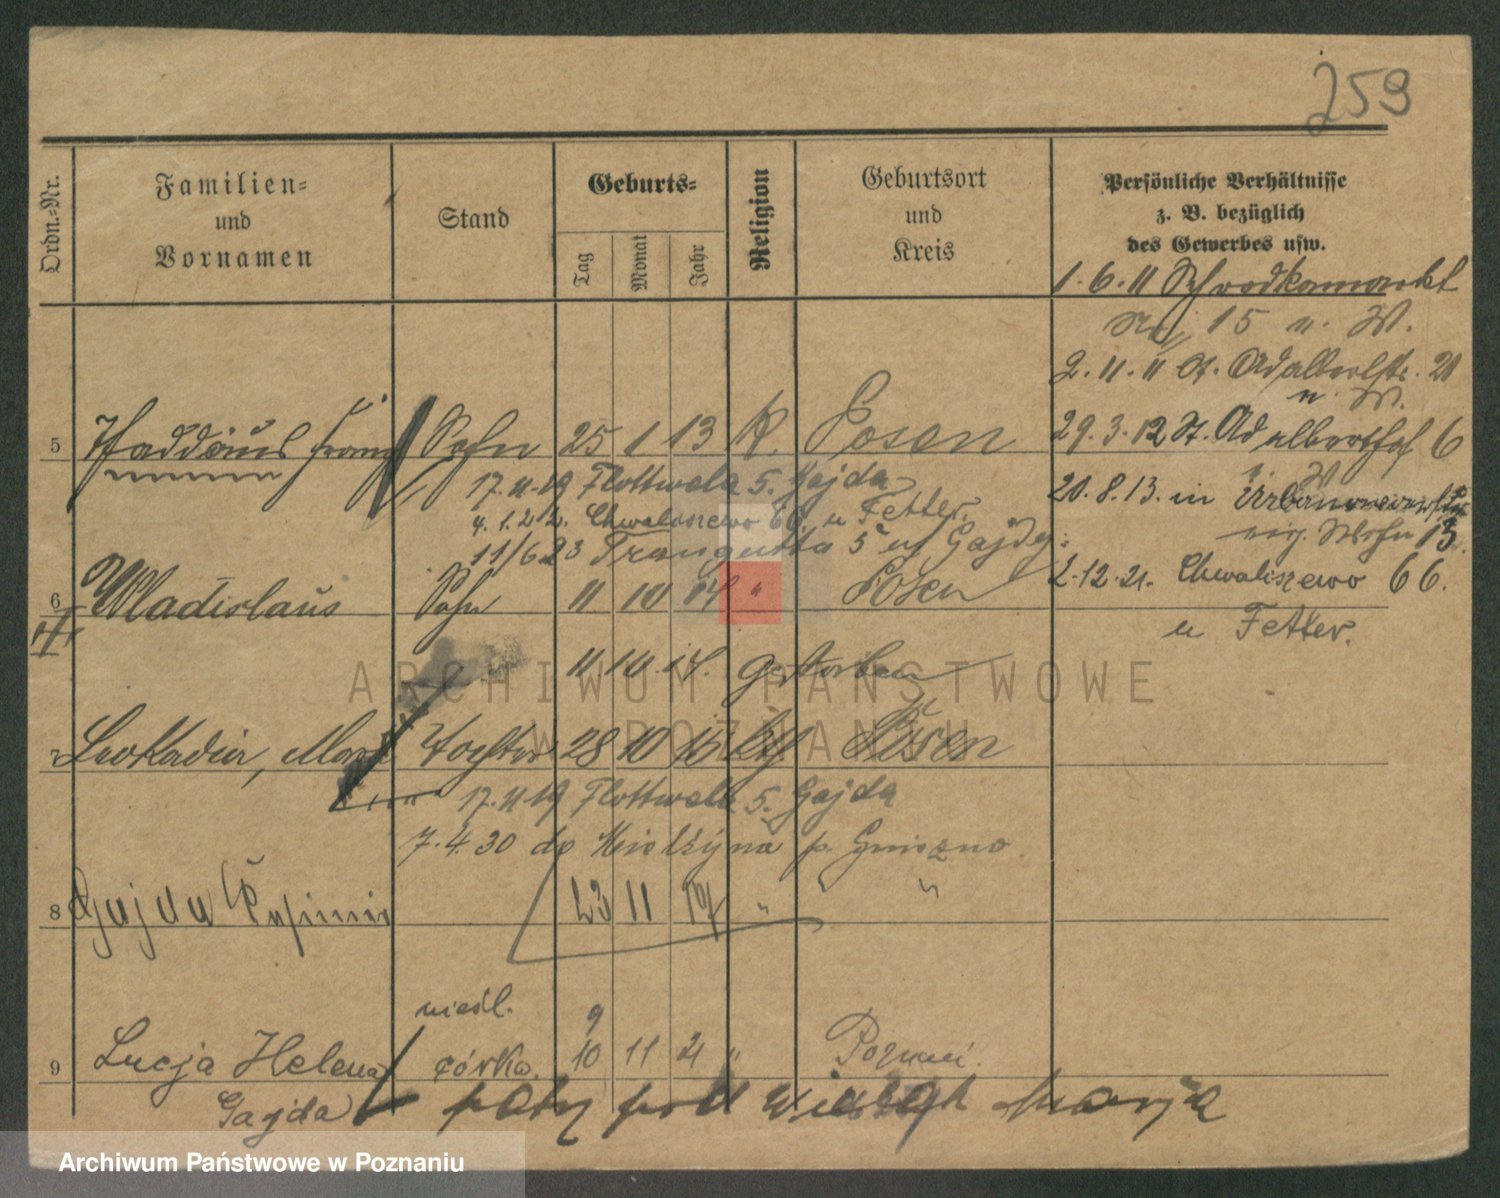 259
Ordn.-Nr.
Familien-
und
Vornamen
Stand
Geburts-
Tag
Monat
Jahr
Religion
Geburtsort
und
Kreis
Persönliche Verhältnisse
z. B. bezüglich
des Gewerbes usw.
1.6.11 Schrodkamarkt
15 n. W.
2.11.11 St. Adalbertstr. 21
n. W.
5 Thaddäus Franz Sohn 25 1 13 K. Posen
29.3.12 St. Adalberthof 6
17.11.19 Flottwela 5. Gajda
20.8.13. in
4.1.22. Chwaliszewo 66. u Fetter.
11/6 23 Traugutta 5 u Gajdy
13.
6 Wladislaus Sohn 11 10 14 " Posen
2.12.21. Chwaliszewo 66.
u Fetter.
11 10.14. gestorben
ARCHIWUM PAŃSTWOWE
W POZNANIU
7 Leokadia, Tochter 28 10 15 Posen
17.11.19 Flottwela 5. Gajda
7.4.30 do Kiołżyna p. Gniezno
8 Gajda 23 11 " "
nieśl.
9
9 Lucja Helena córka. 10 11 21 " Poznań.
Gajda
Marja
Archiwum Państwowe w Poznaniu